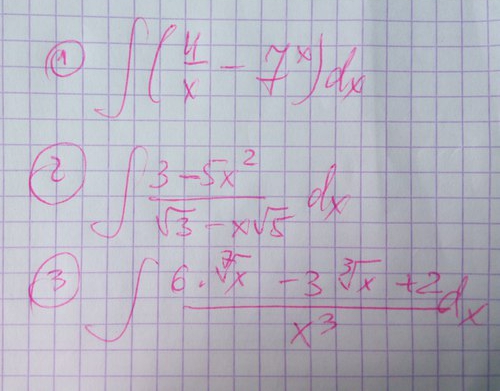 ① ∫ (4/x − 7^x) dx
② ∫ (3 − 5x²)/(√3 − x√5) dx
③ ∫ (6 · ⁷√x − 3 ³√x + 2)/x³ dx